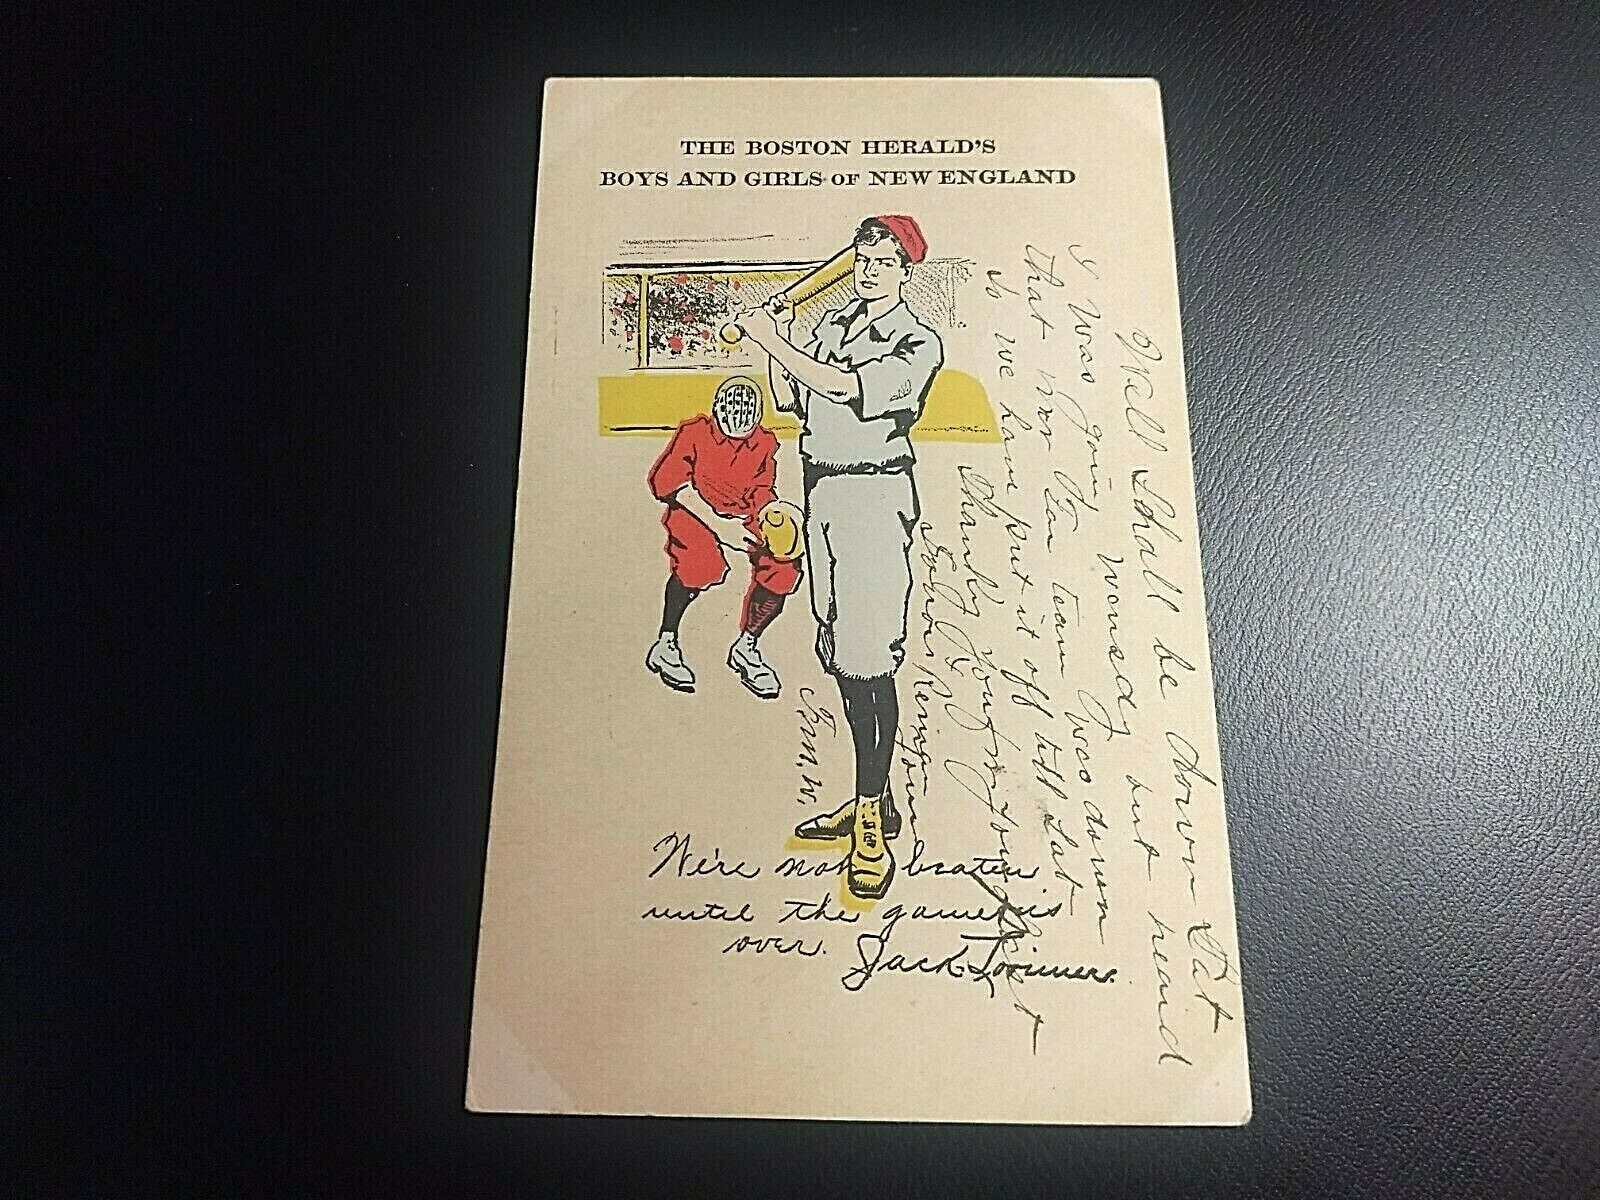 THE BOSTON HERALD'S
BOYS AND GIRLS OF NEW ENGLAND
Well Shall be down Sat
I was goin Wensdy but heard
that nor team was down
so we have put it off till Sat
Thanking you for your
F.M.W.
We're not beaten
until the game is
over.
Jack Lorimer.